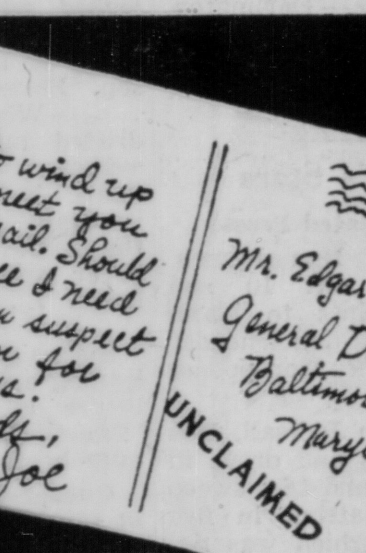 wind up
meet you
ail. Should
ee I need
suspect
for
s.
ds,
Joe
Mr. Edgar
General D
Baltimo
Mary
UNCLAIMED